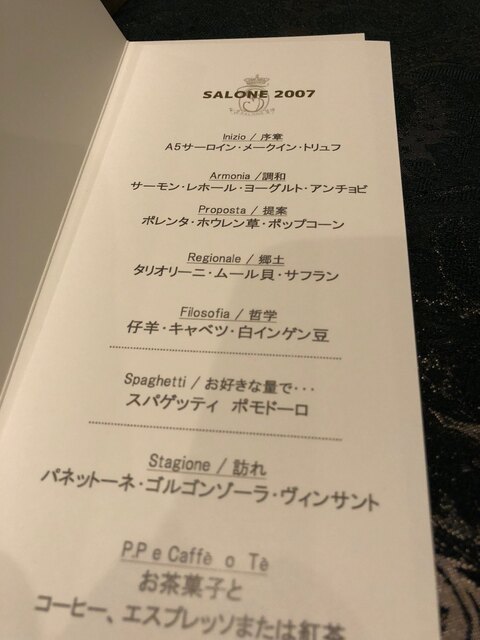 SALONE 2007
Inizio / 序章
A5サーロイン・メークイン・トリュフ
Armonia / 調和
サーモン・レホール・ヨーグルト・アンチョビ
Proposta / 提案
ポレンタ・ホウレン草・ポップコーン
Regionale / 郷土
タリオリーニ・ムール貝・サフラン
Filosofia / 哲学
仔羊・キャベツ・白インゲン豆
Spaghetti / お好きな量で・・・
スパゲッティ ポモドーロ
Stagione / 訪れ
パネットーネ・ゴルゴンゾーラ・ヴィンサント
P.P e Caffè o Tè
お茶菓子と
コーヒー、エスプレッソまたは紅茶